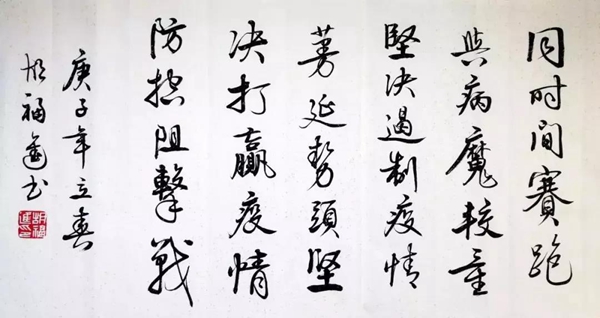 同时间賽跑
與病魔较量
堅决遏制疫情
蔓延势頭堅
决打贏疫情
防控阻擊战
庚子年立春
胡福书